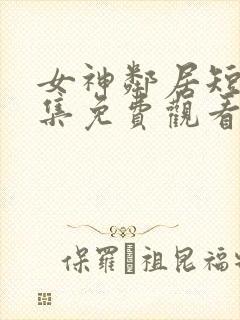 女神鄰居短
集免費觀看
保羅·祖昆福